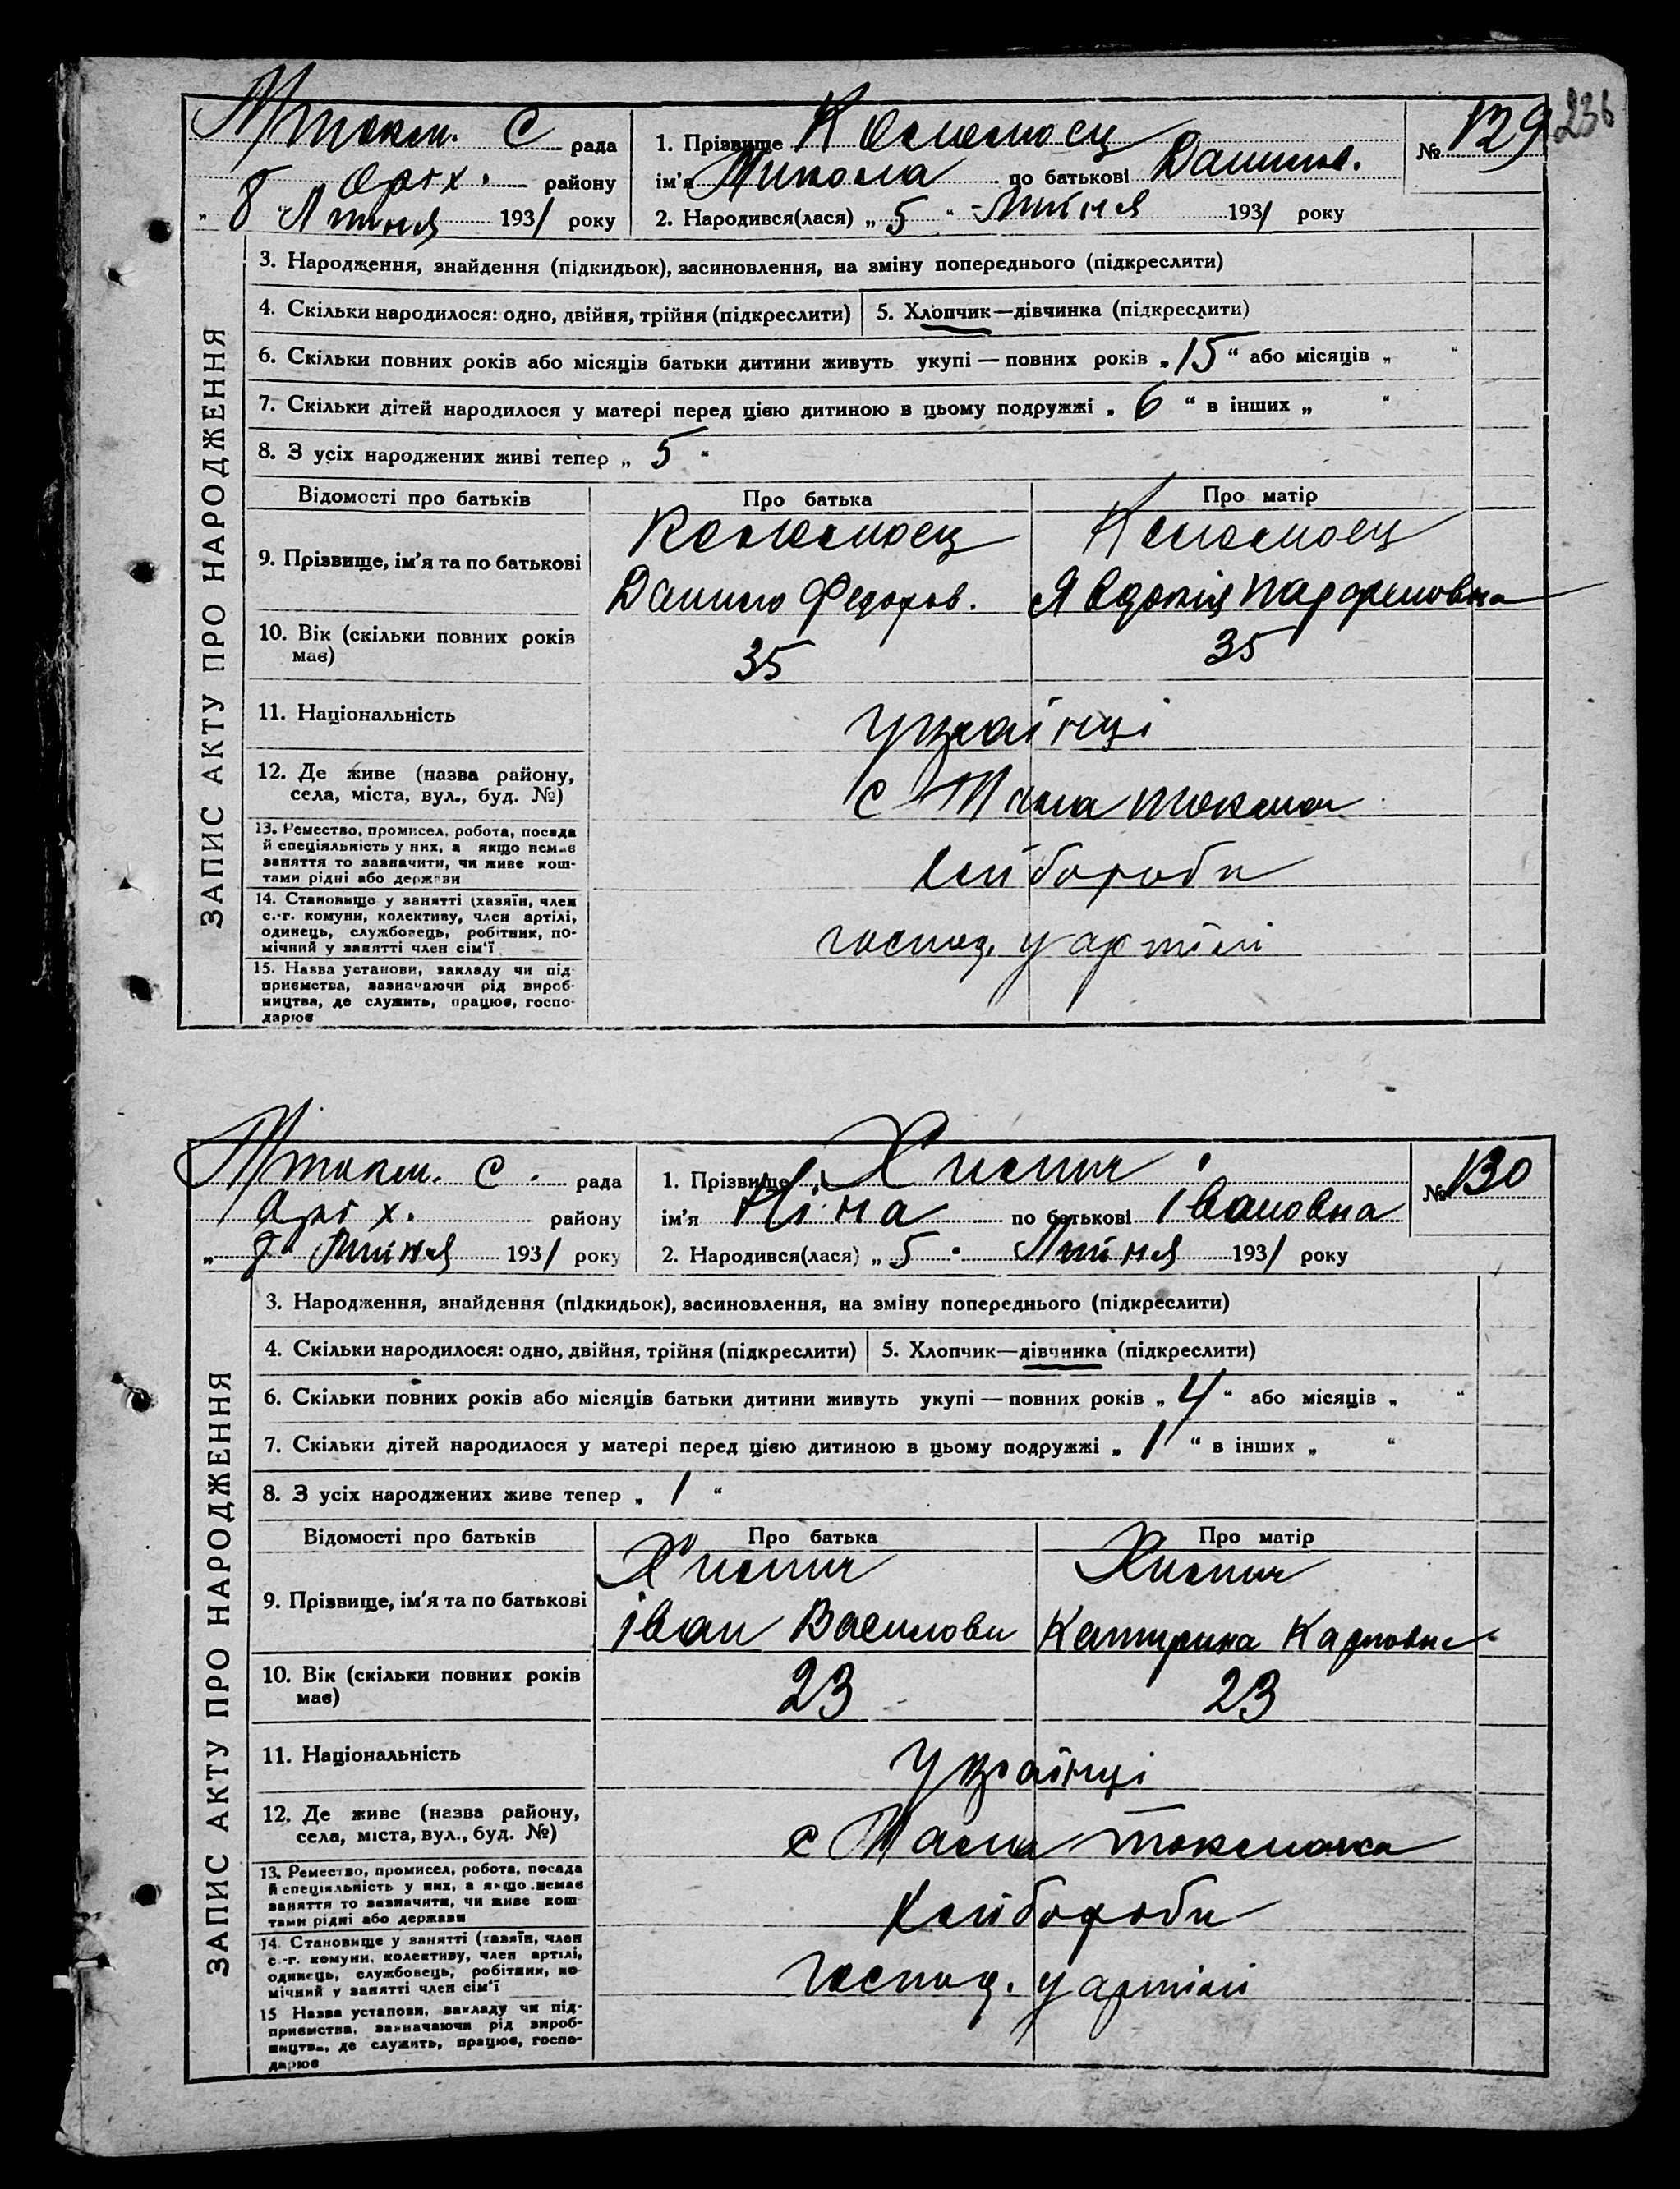 236
Мтокм. С рада
Оріх. району
„ 8 " Липня 1931 року
1. Прізвище
ім'я Микола по батькові Данилов.
2. Народився(лася) „ 5 “ Липня 1931 року
№ 129
ЗАПИС АКТУ ПРО НАРОДЖЕННЯ
3. Народження, знайдення (підкидьок), засиновлення, на зміну попереднього (підкреслити)
4. Скільки народилося: одно, двійня, трійня (підкреслити) 5. Хлопчик—дівчинка (підкреслити)
6. Скільки повних років або місяців батьки дитини живуть укупі — повних років „ 15 “ або місяців „ “
7. Скільки дітей народилося у матері перед цією дитиною в цьому подружжі „ 6 “ в інших „ “
8. З усіх народжених живі тепер „ 5 “
Відомості про батьків Про батька Про матір
9. Прізвище, ім'я та по батькові
Данило Федоров. Явдокія Парфеновна
10. Вік (скільки повних років має) 35 35
11. Національність Українці
12. Де живе (назва району, села, міста, вул., буд. №) с Мала токмач
13. Ремество, промисел, робота, посада
й спеціяльність у них, а якщо немає
заняття то зазначити, чи живе кош-
тами рідні або держави
хлібороби
14. Становище у занятті (хазяїн, член
с.-г. комуни, колективу, член артілі,
одинець, службовець, робітник, по-
мічний у занятті член сім'ї
господ. у артілі
15. Назва установи, закладу чи під-
приємства, зазначаючи рід вироб-
ництва, де служить, працює, госпо-
дарює
Мтокм. С. рада
Оріх. району
„ 8 " Липня 1931 року
1. Прізвище
ім'я Ніна по батькові Івановна
2. Народився(лася) „ 5 “ Липня 1931 року
№ 130
ЗАПИС АКТУ ПРО НАРОДЖЕННЯ
3. Народження, знайдення (підкидьок), засиновлення, на зміну попереднього (підкреслити)
4. Скільки народилося: одно, двійня, трійня (підкреслити) 5. Хлопчик—дівчинка (підкреслити)
6. Скільки повних років або місяців батьки дитини живуть укупі — повних років „ 4 “ або місяців „ “
7. Скільки дітей народилося у матері перед цією дитиною в цьому подружжі „ 1 “ в інших „ “
8. З усіх народжених живе тепер „ 1 “
Відомості про батьків Про батька Про матір
9. Прізвище, ім'я та по батькові
Іван Василови Катирина Карповна
10. Вік (скільки повних років має) 23 23
11. Національність Українці
12. Де живе (назва району, села, міста, вул., буд. №) с Мала токмачка
13. Ремество, промисел, робота, посада
й спеціяльність у них, а якщо немає
заняття то зазначити, чи живе кош-
тами рідні або держави
Хлібороби
14. Становище у занятті (хазяїн, член
с.-г. комуни, колективу, член артілі,
одинець, службовець, робітник, по-
мічний у занятті член сім'ї
Господ. у артілі
15 Назва установи, закладу чи під-
приємства, зазначаючи рід вироб-
ництва, де служить, працює, госпо-
дарює